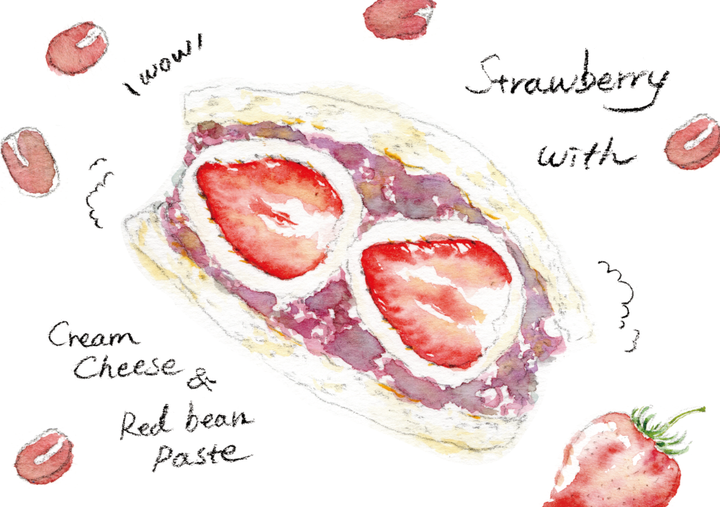 ! wow!
Strawberry
with
Cream
Cheese &
Red bean
Paste